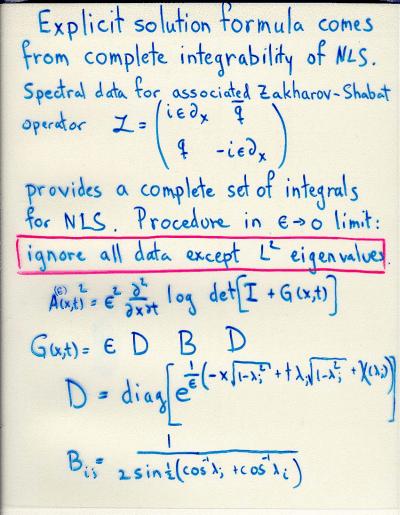 Explicit solution formula comes
from complete integrability of NLS.
Spectral data for associated Zakharov-Shabat
operator L = ( iε∂ₓ  q̄
q  -iε∂ₓ )
provides a complete set of integrals
for NLS. Procedure in ε→0 limit:
ignore all data except L² eigenvalues.
A^(ε)(x,t)² = ε² ∂²/∂x∂t log det[I + G(x,t)]
G(x,t) = ε D B D
D = diag[e^{1/ε(-x√(1-λᵢ²) + tλᵢ√(1-λᵢ²) + χ(λᵢ))}]
Bᵢⱼ = 1 / 2 sin ½(cos⁻¹λⱼ + cos⁻¹λᵢ)